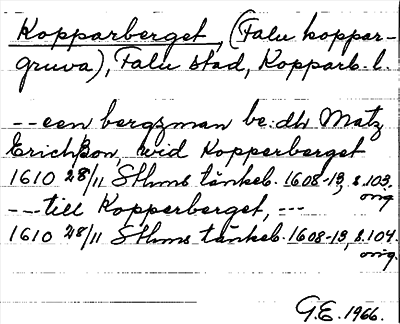 Kopparberget, (Falu koppar-
gruva), Falu stad, Kopparb. l.
--een bergzman be:dh Matz
Erichßon, wid Kopperberget
1610 28/11 Sthms tänkeb. 1608-13, s. 103.
orig
---till Kopperberget, ---
1610 28/11 Sthms tänkeb. 1608-13, s. 104.
orig.
G.E. 1966.